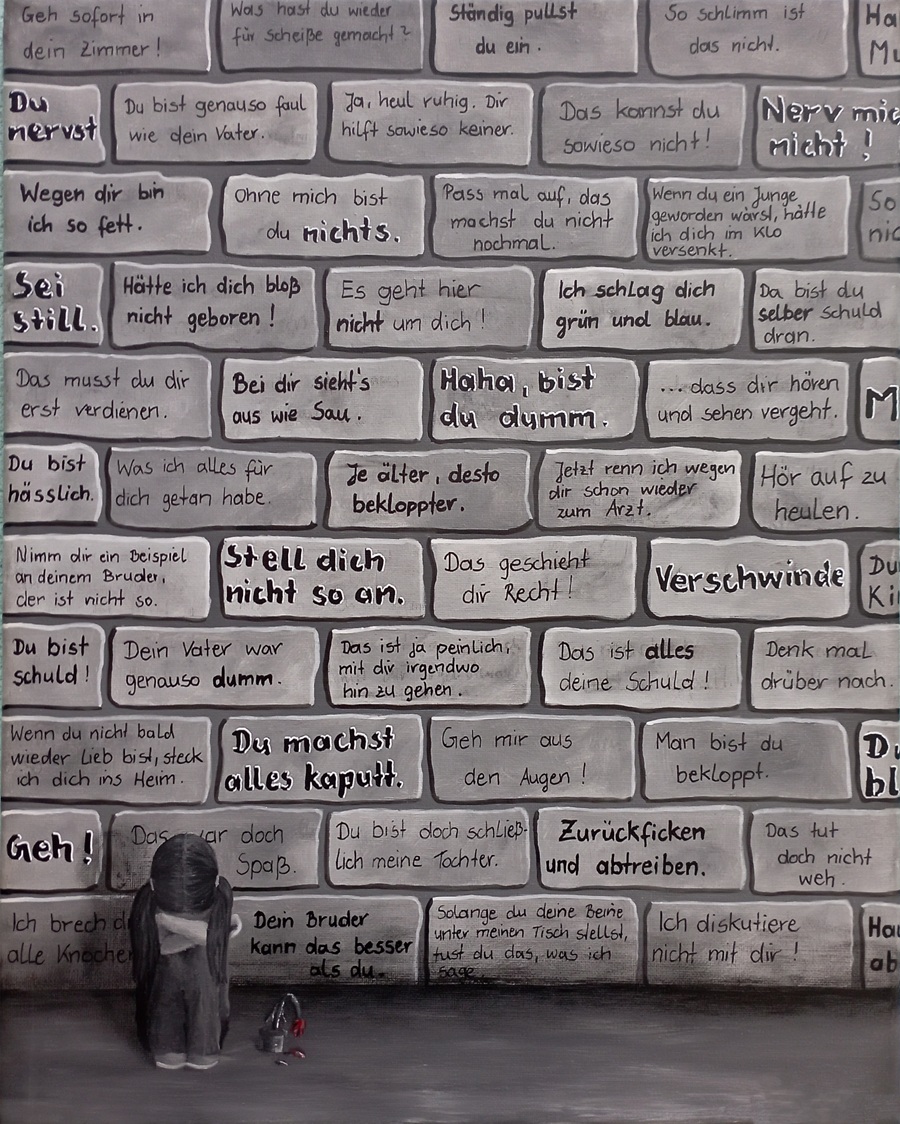 Geh sofort in
dein Zimmer!
Was hast du wieder
für Scheiße gemacht?
Ständig pullst
du ein.
So schlimm ist
das nicht.
Ha
Mu
Du
nervst
Du bist genauso faul
wie dein Vater.
Ja, heul ruhig. Dir
hilft sowieso keiner.
Das kannst du
sowieso nicht!
Nerv mic
nicht!
Wegen dir bin
ich so fett.
Ohne mich bist
du nichts.
Pass mal auf, das
machst du nicht
nochmal.
Wenn du ein Junge
geworden wärst, hätte
ich dich im Klo
versenkt.
So
nic
Sei
still.
Hätte ich dich bloß
nicht geboren!
Es geht hier
nicht um dich!
Ich schlag dich
grün und blau.
Da bist du
selber schuld
dran.
Das musst du dir
erst verdienen.
Bei dir sieht's
aus wie Sau.
Haha, bist
du dumm.
...dass dir hören
und sehen vergeht.
M
Du bist
hässlich.
Was ich alles für
dich getan habe.
Je älter, desto
bekloppter.
Jetzt renn ich wegen
dir schon wieder
zum Arzt.
Hör auf zu
heulen.
Nimm dir ein Beispiel
an deinem Bruder,
der ist nicht so.
Stell dich
nicht so an.
Das geschieht
dir Recht!
Verschwinde
Du
Ki
Du bist
schuld!
Dein Vater war
genauso dumm.
Das ist ja peinlich,
mit dir irgendwo
hin zu gehen.
Das ist alles
deine Schuld!
Denk mal
drüber nach.
Wenn du nicht bald
wieder lieb bist, steck
ich dich ins Heim.
Du machst
alles kaputt.
Geh mir aus
den Augen!
Man bist du
bekloppt.
Du
bl
Geh!
Das war doch
Spaß.
Du bist doch schließ-
lich meine Tochter.
Zurückficken
und abtreiben.
Das tut
doch nicht
weh.
Ich brech d
alle Knochen
Dein Bruder
kann das besser
als du.
Solange du deine Beine
unter meinen Tisch stellst,
tust du das, was ich
sage.
Ich diskutiere
nicht mit dir!
Hau
ab